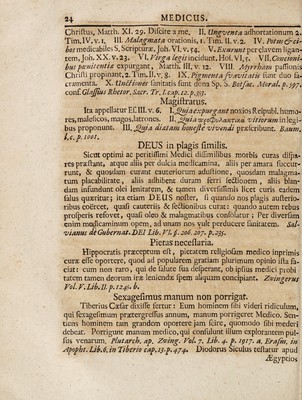 24 MEDICUS.
Christus, Matth. XI. 29. Discite à me, II. Unguenta adhortationum 2.
Tim. IV. v. 1. III. Malagmata orationis, 1. Tim. II. v. 2. IV. Potus & ci-
bus medicabiles S. Scripturæ, Joh. VI. v. 54. V. Exurunt per clavem ligan-
tem, Joh. XX. v. 23. VI. Virga legis incidunt, Hol. V. 1, VII. Conventi-
bus pœnitentiæ expurgant, Matth. III. v. 12. VIII. Myrrham passionis
Christi propinant, 2. Tim. II. v. 8. IX. Pigmenta suavitatis sunt duo sa-
cramenta. X. Unctiones sanitatis sunt dona Sp. S. Besoæ. Moral. p. 397.
conf. Glassius Rhetor. Sacr. Tr. 1. cap. 12. p. 357.
Magistratus.
Ita appellatur Es. III. v. 6. I. Quia expurgant noxios Reipubl. humo-
res, maleficos, magos, latrones. II. Quia vitiorum in legi-
bus proponunt. III. Quia diætam honestè vivendi præscribunt. Baum.
l. c. p. 1001.
DEUS in plagis similis.
Sicut optimi ac peritissimi Medici dissimilibus morbis curas dispa-
res præstant, atque aliis per dulcia medicamina, aliis per amara succur-
runt, & quosdam curant cauteriorum adustione, quosdam malagma-
tum placabilitate, aliis adhibent duram ferri sectionem, aliis blan-
dam infundunt olei lenitatem, & tamen diversissimis licet curis eadem
salus quæritur; ita etiam DEUS noster, si quando nos plagis austerio-
ribus coërcet, quasi cauteriis & sectionibus curat: quando autem rebus
prosperis refovet, quasi oleo & malagmatibus consolatur; Per diversam
enim medicaminum opem, ad unam nos vult perducere sanitatem. Sal-
vianus de Gubernat. DEI Lib. VI. f. 206. 207. p. 235.
Pietas necessaria.
Hippocratis præceptum est, pietatem religiosam medico inprimis
curæ esse oportere, quod ad populorum gratiam plurimum opinio ista fa-
ciat: cum non raro, qui de salute sua desperant, ob ipsius medici probi
tatem tamen deorum ira leniendæ spem aliquam concipiant. Zwingerus
Vol. V. Lib. II. p. 1240. b.
Sexagesimus manum non porrigat.
Tiberius Cæsar dixisse fertur: Eum hominem sibi videri ridiculum,
qui sexagesimum prætergressus annum, manum porrigeret Medico. Sen-
tiens hominem tam grandem oportere jam scire, quomodo sibi mederi
debeat. Porrigunt manum medico, qui consulunt illum explorantem pul-
sus venarum. Plutarch. ap. Zwing. Vol. 7. Lib. 4. p. 1917. a. Erasm. in
Apopht. Lib. 6. in Tiberio cap. 13. p. 474. Diodorus Siculus testatur apud
Ægyptios